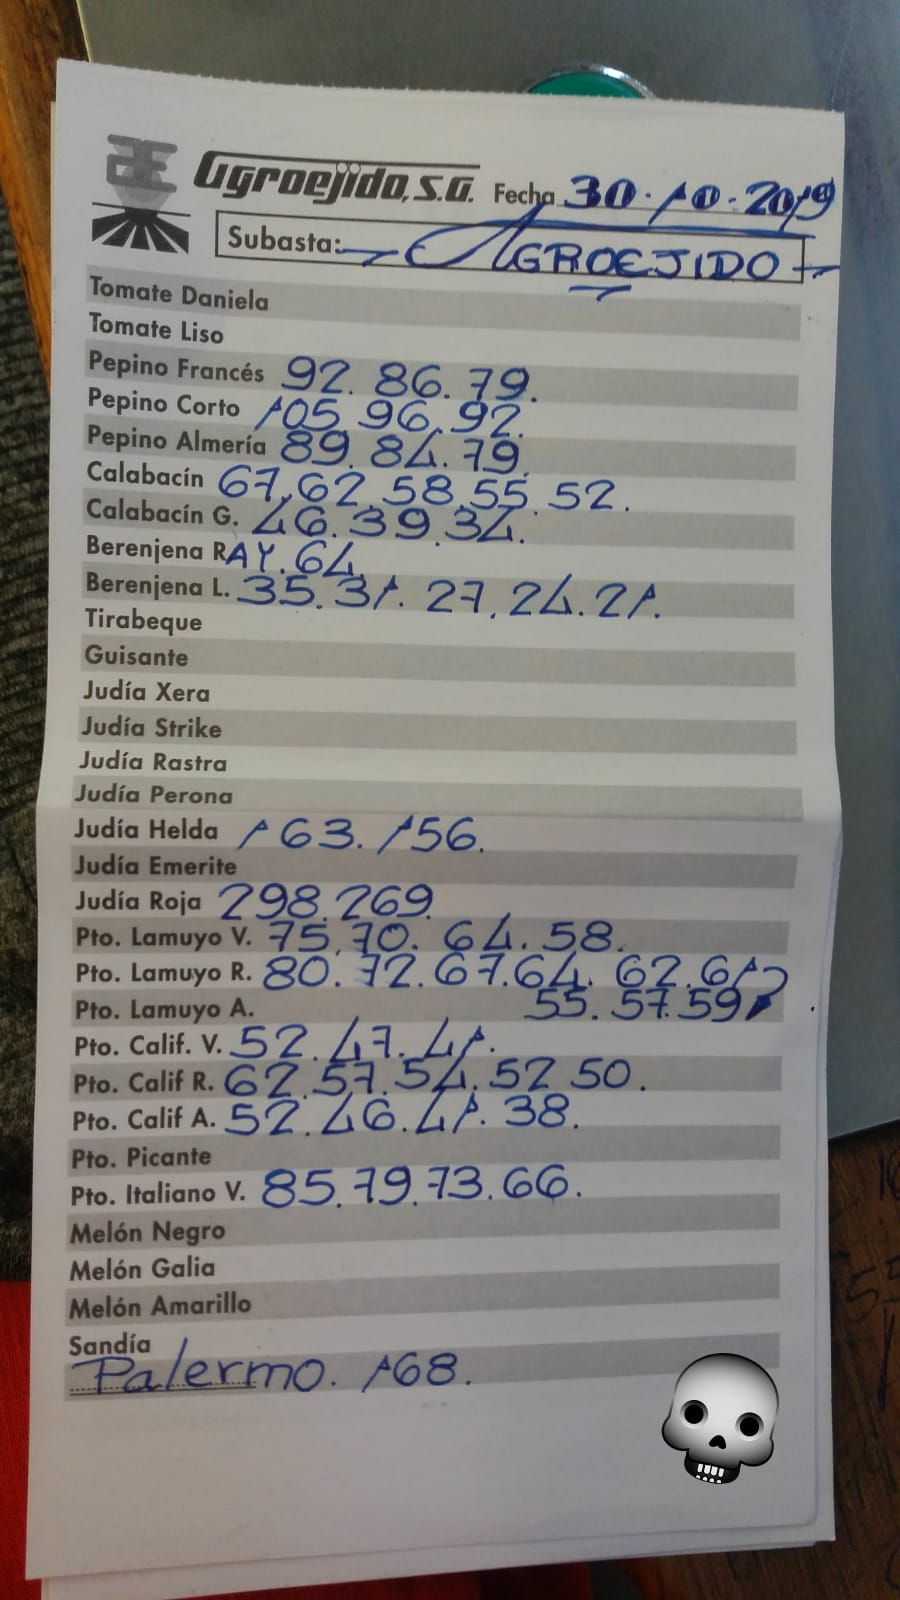 Agroejido, S.A. Fecha 30.10.2019
Subasta: AGROEJIDO
Tomate Daniela
Tomate Liso
Pepino Francés 92. 86. 79.
Pepino Corto 105. 96. 92.
Pepino Almería 89. 84. 79.
Calabacín 67. 62. 58. 55. 52.
Calabacín G. 46. 39. 34.
Berenjena RAY. 64
Berenjena L. 35. 31. 27. 24. 21.
Tirabeque
Guisante
Judía Xera
Judía Strike
Judía Rastra
Judía Perona
Judía Helda 163. 156.
Judía Emerite
Judía Roja 298. 269.
Pto. Lamuyo V. 75. 70. 64. 58.
Pto. Lamuyo R. 80. 72. 67. 64. 62. 61
Pto. Lamuyo A. 55. 57. 59
Pto. Calif. V. 52. 47. 41.
Pto. Calif R. 62. 57. 54. 52 50.
Pto. Calif A. 52. 46. 41. 38.
Pto. Picante
Pto. Italiano V. 85. 79. 73. 66.
Melón Negro
Melón Galia
Melón Amarillo
Sandía
Palermo. 168.